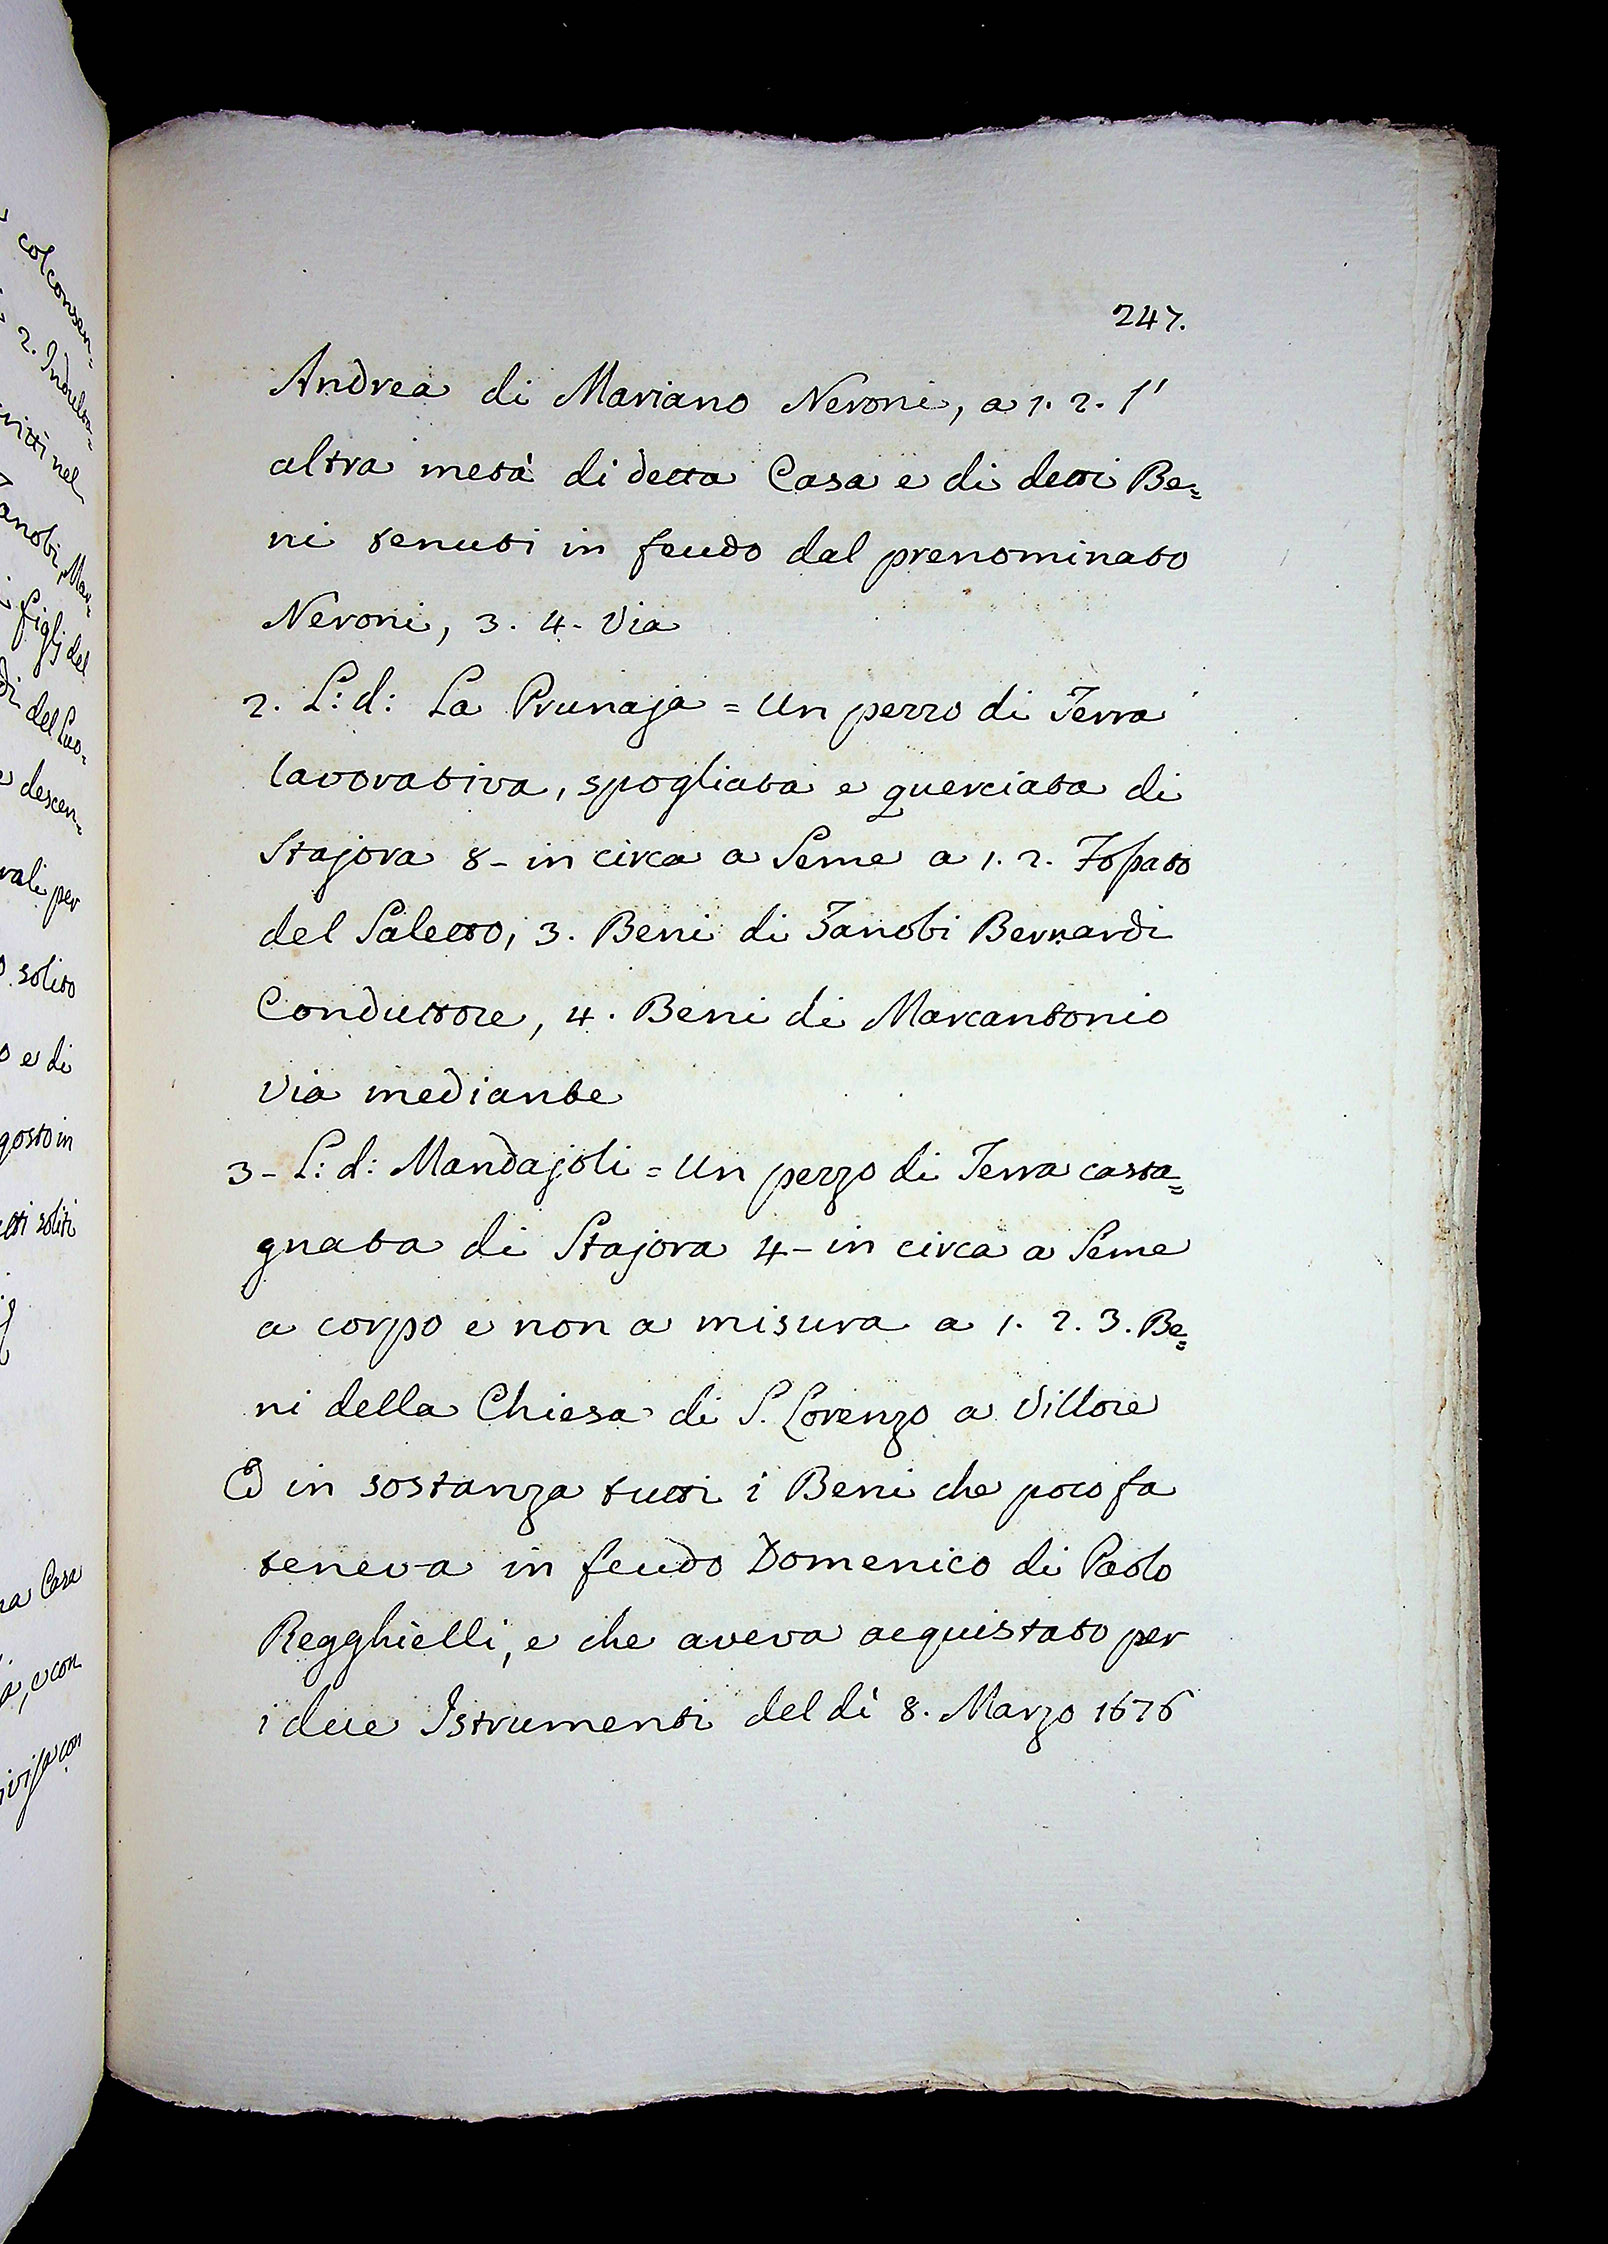 col consen-
2. Indulto-
critti nel
Zanobi, Mar-
figlj del
di del Suo-
e descen-
rali per
solito
o e di
gosto in
etti soliti
na Casa
a, e con
ivisa con
247.
Andrea di Mariano Neroni, a 1. 2. l'
altra metà di detta Casa e di detti Be=
ni tenuti in feudo dal prenominato
Neroni, 3. 4. Via
2. L: d: La Prunaja = Un pezzo di Terra
lavorativa, spogliata e querciata di
Stajora 8 - in circa a Seme a 1. 2. Fossato
del Saletto, 3. Beni di Zanobi Bernardi
Conduttore, 4. Beni di Marcantonio
Via mediante
3 - L: d: Mandajoli = Un pezzo di Terra casta=
gnata di Stajora 4 - in circa a Seme
a corpo e non a misura a 1. 2. 3. Be=
ni della Chiesa di S. Lorenzo a Villore
Ed in sostanza tutti i Beni che poco fa
teneva in feudo Domenico di Paolo
Regghielli, e che aveva acquistato per
i due Istrumenti del dì 8. Marzo 1676